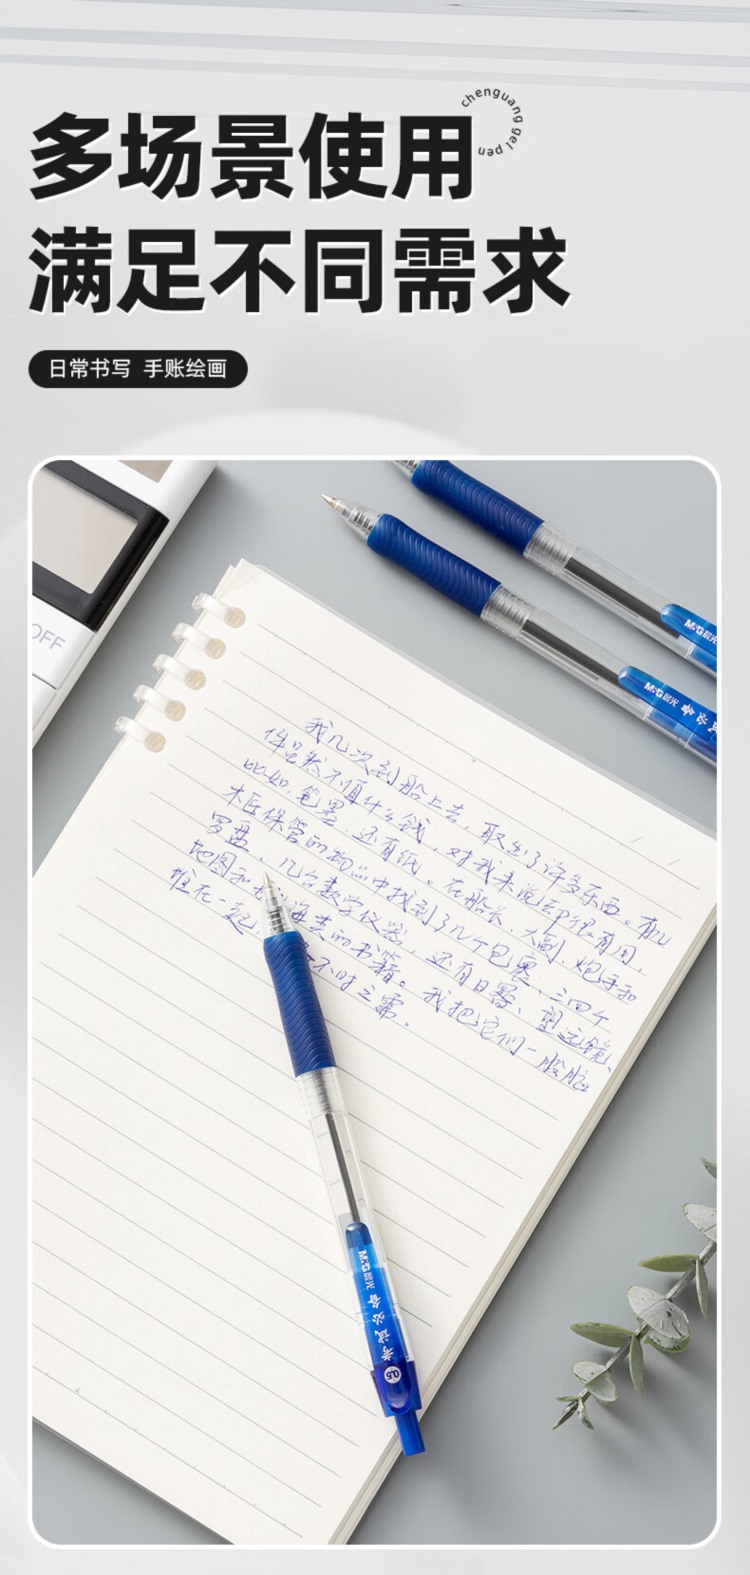 chenguang gel pen
多场景使用
满足不同需求
日常书写 手账绘画
OFF
M&G晨光
M&G晨光 备必
我几次到船上去,取出了许多东西。有几
件虽然不值什么钱,对我来说却很有用,
比如:笔墨,还有纸。在船长、大副、炮手和
木匠保管的物品中找到了几个包裹,三四个
罗盘、几台数学仪器,还有日晷、望远镜、
地图和海类的书籍。我把它们一股脑
堆在一起,不时之需.
M&G晨光 考试必备
0.5